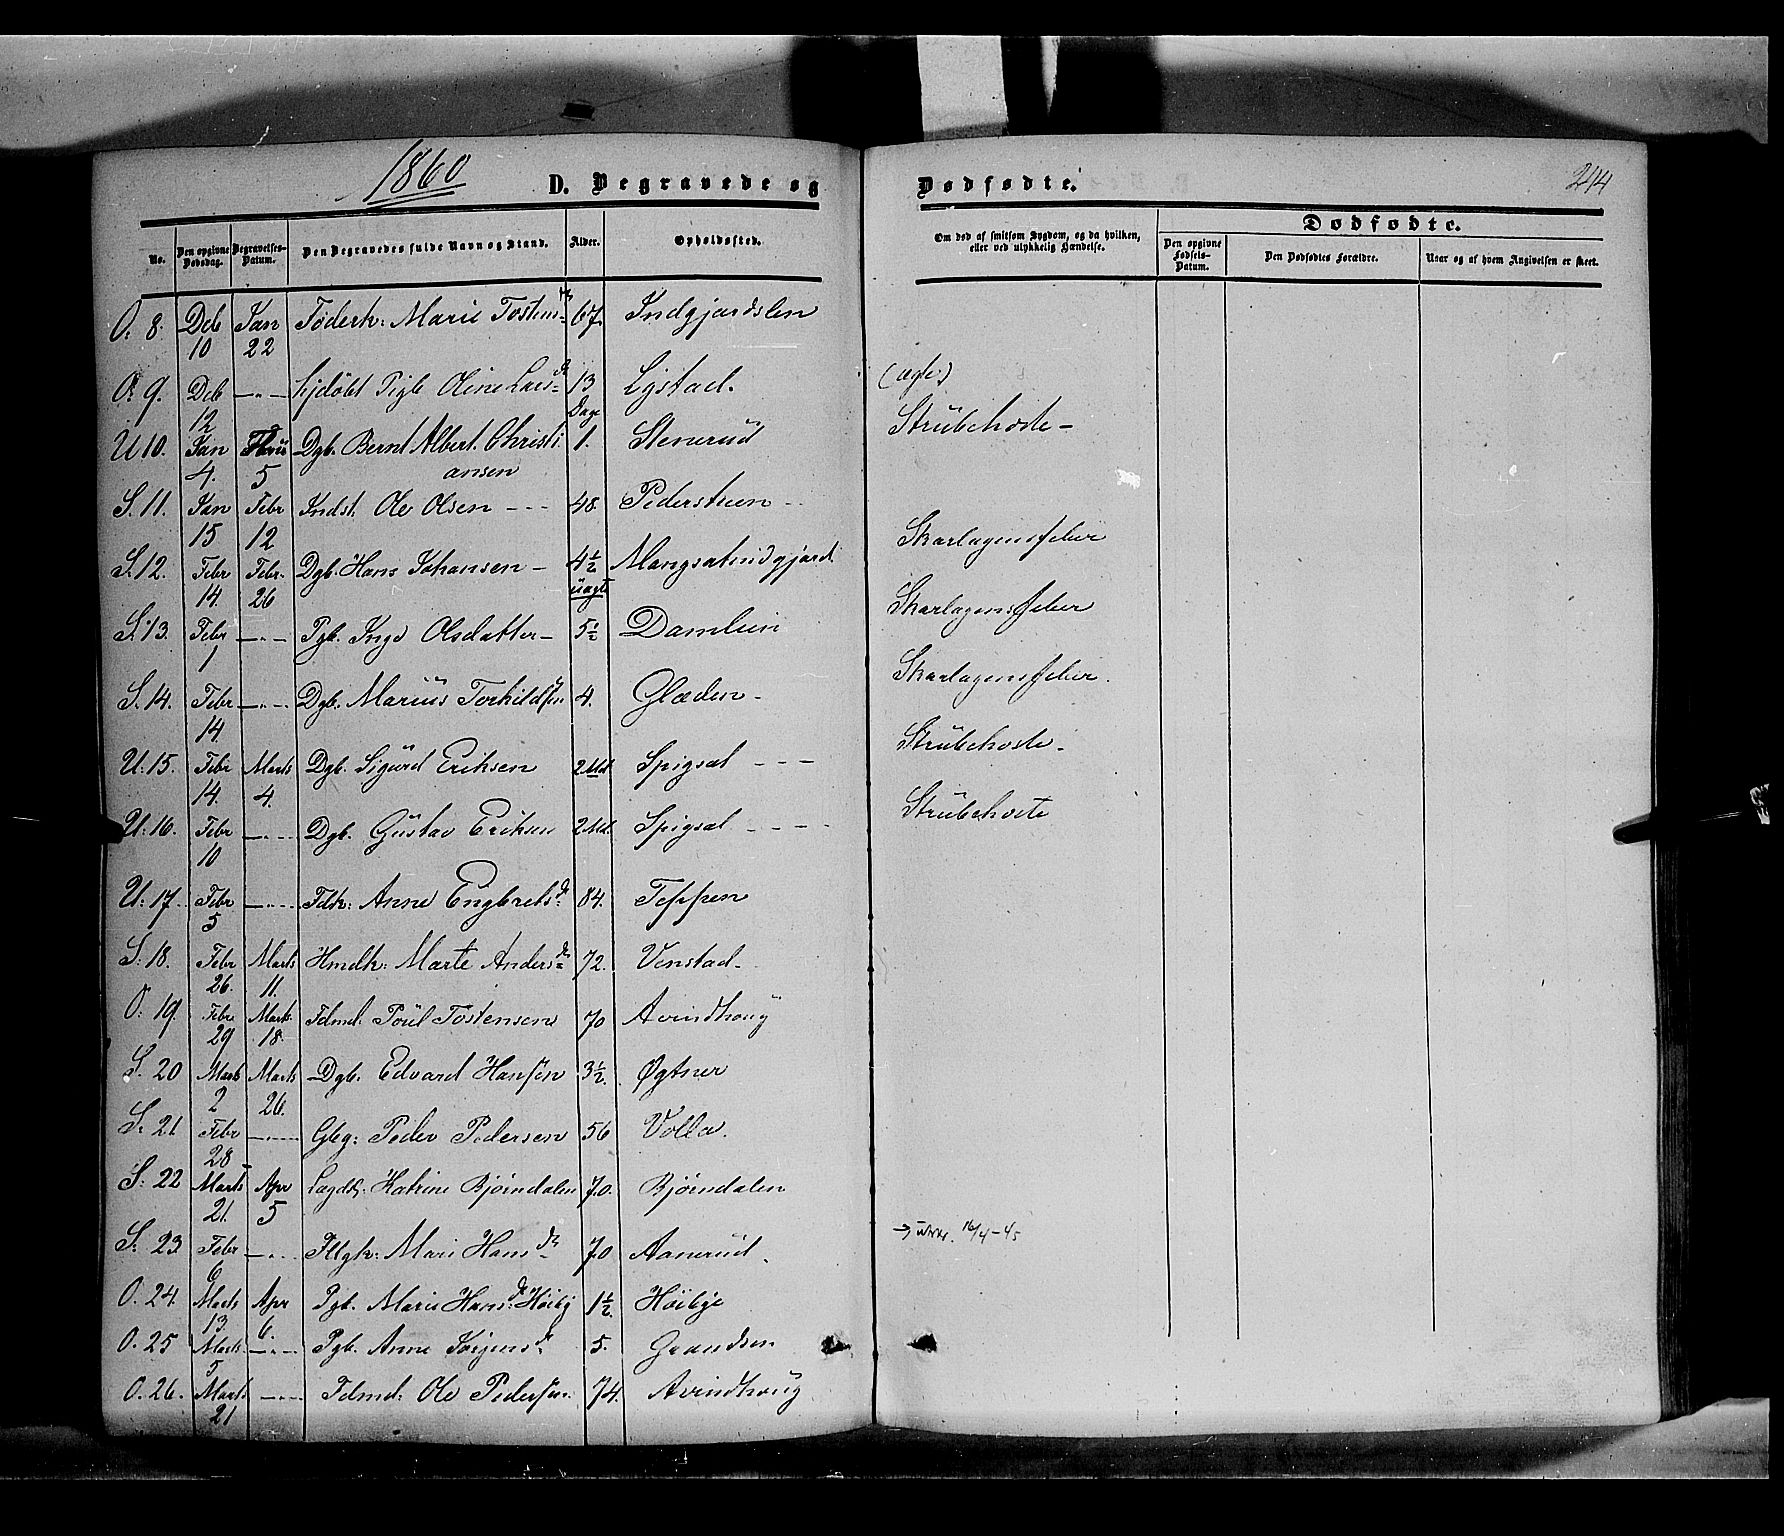 1860
D. Begravede og
Dødfødte.
244
No.
Den opgivne Dødsdag.
Begravelses-Datum.
Den Begravedes fulde Navn og Stand.
Alder.
Opholdssted.
Om død af smitsom Sygdom, og da hvilken, eller ved ulykkelig Hændelse.
Dødfødte.
Den opgivne Fødsels-Datum.
Den Dødfødtes Forældre.
Naar og af hvem Angivelsen er skeet.
O. 8. Deb 10 Jan 22 Føderk: Marie Tostensdr 67. Indgjardslen
O. 9. Deb 12 —"— Hjdøbt Pigb Oline Larsdr 13 Dage Lystad. (ægte)
U 10. Jan 4. 5 Dgb. Bernt Albert Christiansen 1. Stenerud Strubehoste -
S. 11. Jan 15 Febr 12 Indst. Ole Olsen - - - 48. Pedersteen - -
S. 12. Febr 14. Febr. 26 Dgb. Hans Johansen - 4½ uægte Mangsetindgjard Skarlagensfeber
S. 13. Febr 1 —"— Pgb. Inge Olsdatter - 5½ Damlien Skarlagensfeber
S. 14. Febr 14. —"— Dgb. Marius Torkildsen 4. Glæden - Skarlagensfeber.
U. 15. Febr 14. Marts 4. Dgb. Sigurd Eriksen 2 Md. Spigset - - - Strubehoste -
U. 16. Febr 10 —"— Dgb. Gustav Eriksen 2 Md. Spigset - - - - Strubehoste
U. 17. Febr 5 —"— Fdk: Anne Engebretsdr 84. Teppen
S. 18. Febr 26 Marts 11. Hmdk: Marte Andersdr 72. Venstad -
O. 19. Febr 29 Marts 18. Fdmd. Poul Tostensen 70 Avindhoug
S. 20 Marts 2 Marts 26. Dgb. Edvard Hansen 3½. Øgtner
S. 21 Febr 28 —"— Gbg: Peder Pedersen 56 Volla.
S. 22 Marts 21. Apr 5 Lagdl: Katrine Bjørndalen 70. Bjørndalen
S. 23 Febr 6 —"— Mari Hansdr 70 Aanerud. → 16/4-45
O. 24. Marts 13. Apr 6. Pgb. Marie Hansdr Høiby 1½. Høibye
O. 25 Marts 5 —"— Pgb. Anne Jørgensdr 5. Grandsen
O. 26. Marts 21 —"— Fdmd: Ole Pedersen 74. Avindhoug